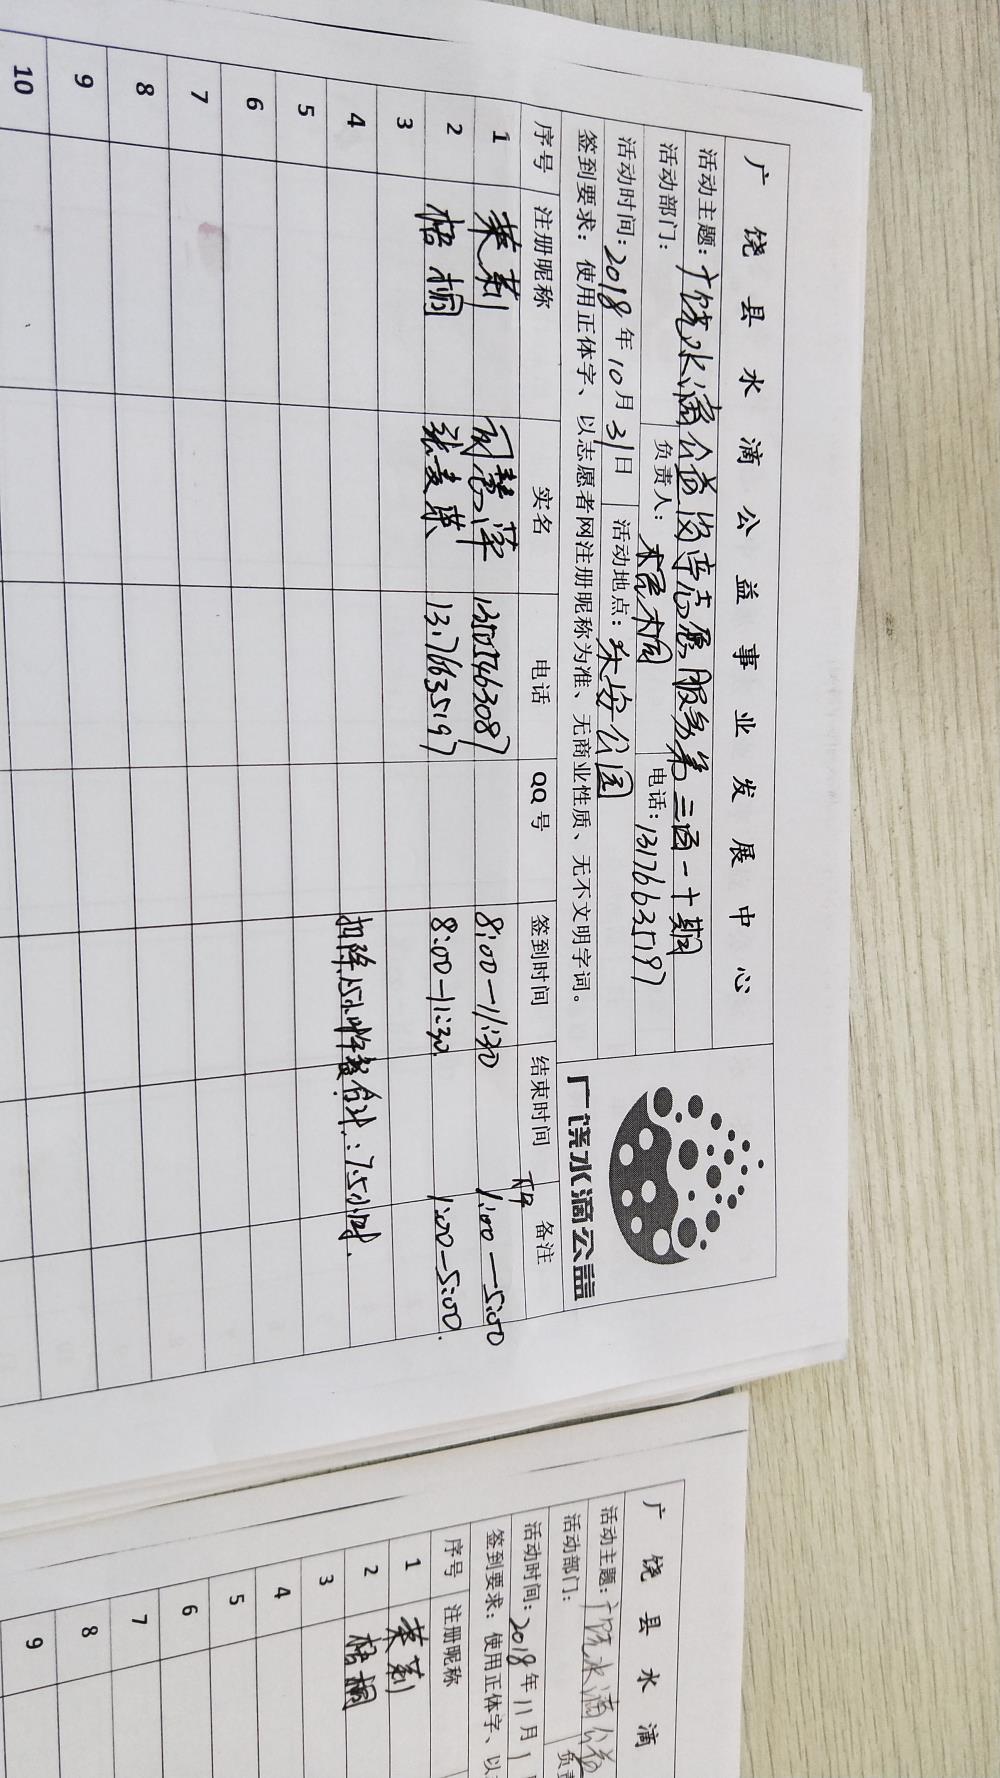 广饶县水滴公益事业发展中心
活动主题：广饶水滴公益岗亭志愿服务第三百一十期
活动部门： 负责人：梧桐 电话：13176635197
活动时间：2018年10月31日 活动地点：乐安公园
签到要求：使用正体字、以志愿者网注册昵称为准、无商业性质、无不文明字词。
广饶水滴公益
序号 注册昵称 实名 电话 QQ号 签到时间 结束时间 备注
1 茉莉 8:00-11:30 1:00-5:00
2 梧桐 张 8:00-11:30 1:00-5:00
3
4 合计：7.5小时
5
6
7
8
9
10
广饶县水滴
活动主题：广饶水滴公益
活动部门： 负责
活动时间：2018年11月1
签到要求：使用正体字、以
序号 注册昵称
1 茉莉
2 梧桐
3
4
5
6
7
8
9